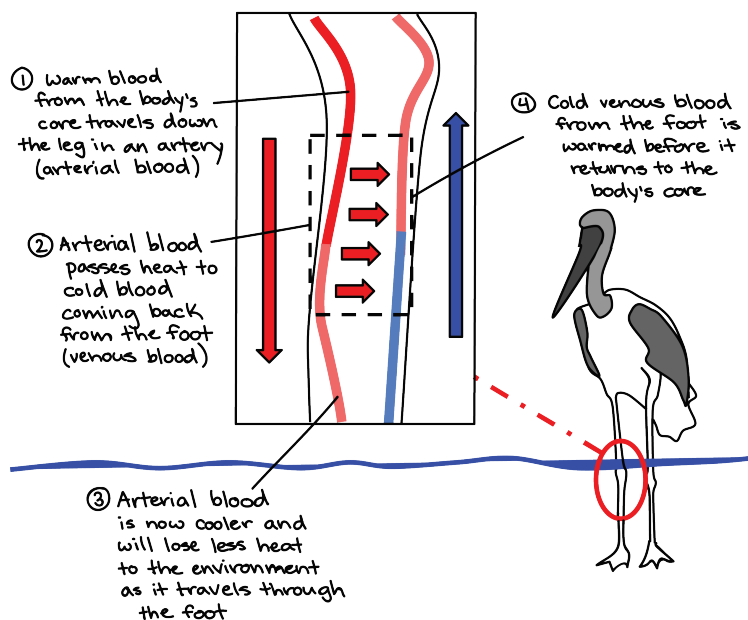 ① Warm blood
from the body's
core travels down
the leg in an artery
(arterial blood)
② Arterial blood
passes heat to
cold blood
coming back
from the foot
(venous blood)
③ Arterial blood
is now cooler and
will lose less heat
to the environment
as it travels through
the foot
④ Cold venous blood
from the foot is
warmed before it
returns to the
body's core